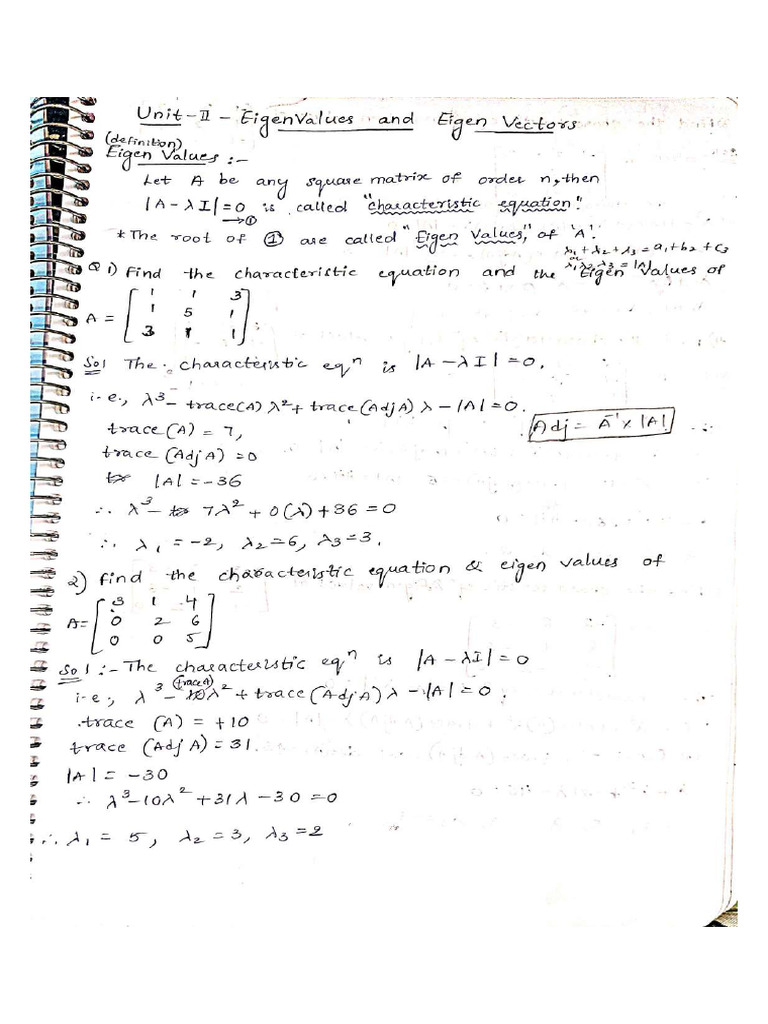 Unit-II - EigenValues and Eigen Vectors
(definition)
Eigen Values :-
Let A be any square matrix of order n, then
|A-λI|=0 is called "characteristic equation".
→①
*The root of ① are called "Eigen Values," of 'A'.
λ1+λ2+λ3=a1+b2+c3
λ1λ2λ3=|A|
Q1) Find the characteristic equation and the Eigen Values of
1 1 3
1 5 1
A = [ ]
3 1 1
Sol The characteristic eqn is |A-λI|=0.
i.e., λ³-trace(A)λ²+trace(AdjA)λ-|A|=0.
Adj = A⁻¹×|A|
trace(A)=7,
trace(AdjA)=0
|A|=-36
∴ λ³- 7λ²+0(λ)+36=0
∴ λ1=-2, λ2=6, λ3=3.
2) find the characteristic equation & eigen values of
3 1 4
A= [ 0 2 6 ]
0 0 5
Sol:- The characteristic eqn is |A-λI|=0
(trace A)
i.e, λ³-10λ²+trace(AdjA)λ-|A|=0.
trace (A) = +10
trace (AdjA)=31.
|A|=-30
∴ λ³-10λ²+31λ-30=0
∴ λ1= 5, λ2=3, λ3=2